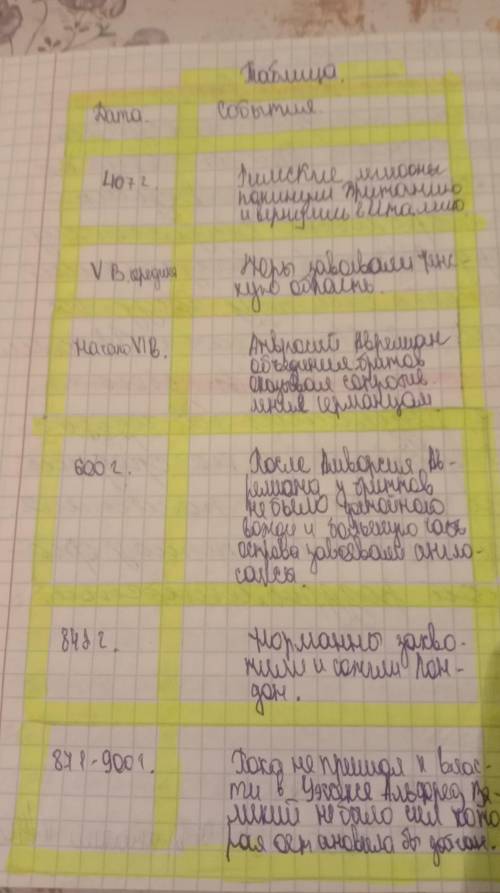 Таблица.
Дата. События.
407 г. Римские легионы
покинули Британию
и вернулись в Италию.
V В. середина завоевали
область.
Начало VI В. Амвросий Аврелиан
объединил бриттов
оказывал сопротив
ление германцам
600 г. После Амвросия Ав-
релиана у бриттов
не было
вождя и большую часть
острова завоевали англо-
саксы.
Норманны захва-
тили и сожгли Лон-
дон.
871-900 г. Пока не пришол к влас-
ти в Уэссексе Альфред Ве-
ликий не было сил кото
рая остановила бы датчан.